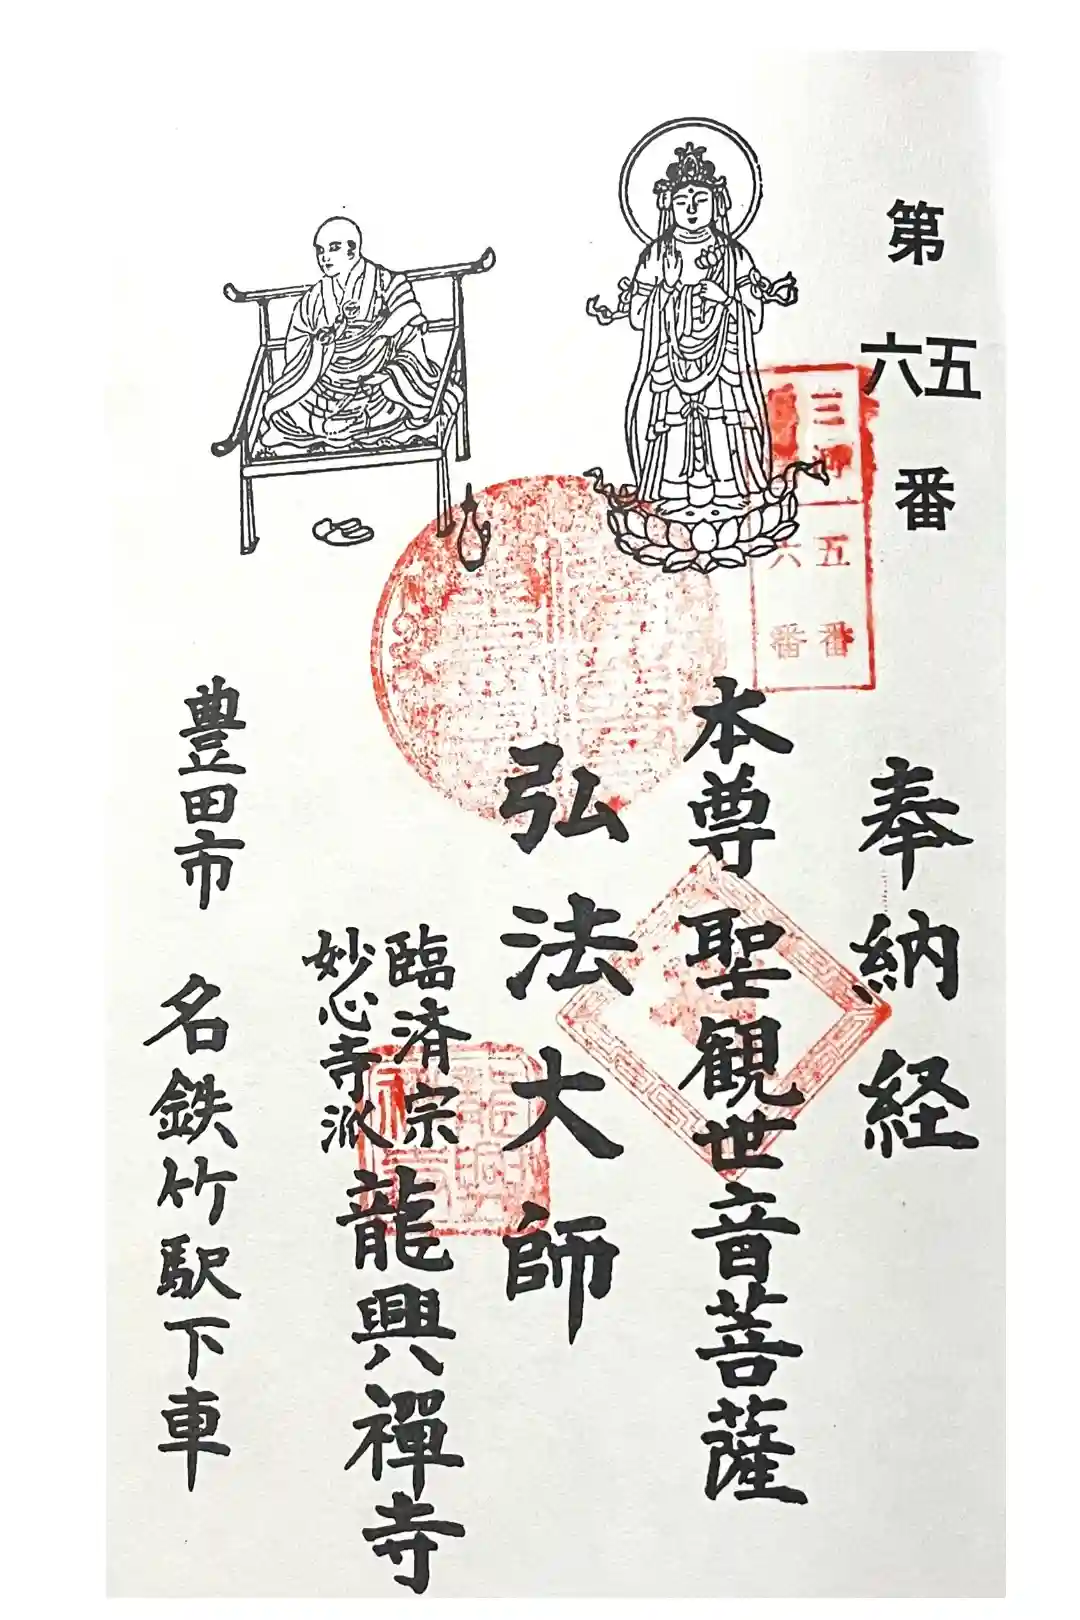 第 六五 番
奉納経
本尊 聖観世音菩薩
弘法大師
臨済宗
妙心寺派
龍興禅寺
豊田市 名鉄竹駅下車
三河
五番
六番